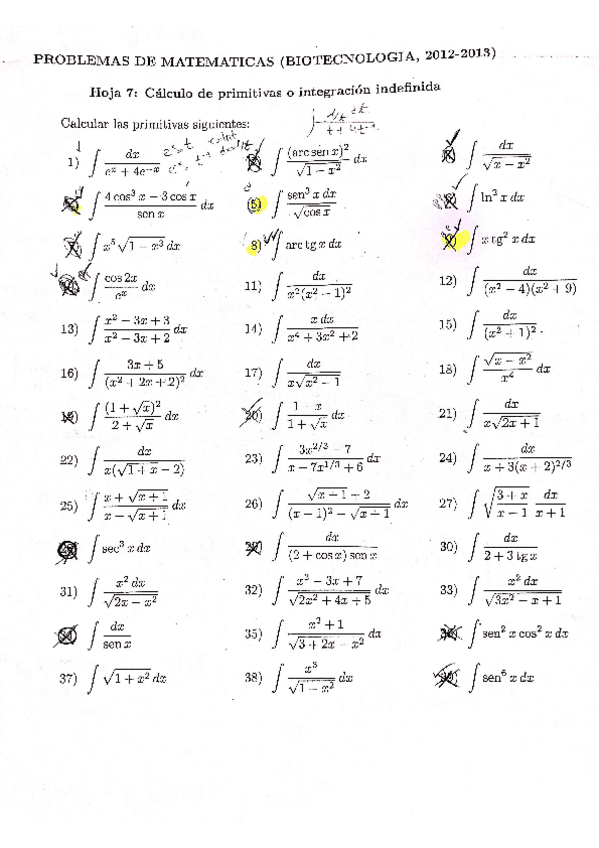 PROBLEMAS DE MATEMATICAS (BIOTECNOLOGIA, 2012-2013)
Hoja 7: Cálculo de primitivas o integración indefinida
Calcular las primitivas siguientes:
1) ∫ dx/(e^x + 4e^-x) ∫ (arc sen x)^2/√(1 - x^2) dx ∫ dx/√(x - x^2)
∫ (4 cos^3 x - 3 cos x)/sen x dx 5) ∫ sen^3 x dx/√cos x ∫ ln^2 x dx
∫ x^5 √(1 - x^3) dx 8) ∫ arc tg x dx 9) ∫ x tg^2 x dx
∫ cos 2x/e^x dx 11) ∫ dx/(x^2(x^2 - 1)^2) 12) ∫ dx/((x^2 - 4)(x^2 + 9))
13) ∫ (x^2 - 3x + 3)/(x^2 - 3x + 2) dx 14) ∫ x dx/(x^4 + 3x^2 + 2) 15) ∫ dx/(x^2 + 1)^2.
16) ∫ (3x + 5)/(x^2 + 2x + 2)^2 dx 17) ∫ dx/(x√(x^2 - 1)) 18) ∫ √(x - x^2)/x^4 dx
19) ∫ (1 + √x)^2/(2 + √x) dx 20) ∫ (1 - x)/(1 + √x) dx 21) ∫ dx/(x√(2x + 1))
22) ∫ dx/(x(√(1 + x) - 2)) 23) ∫ (3x^2/3 - 7)/(x - 7x^1/3 + 6) dx 24) ∫ dx/(x + 3(x + 2)^2/3)
25) ∫ (x + √(x + 1))/(x - √(x + 1)) dx 26) ∫ (√(x + 1) + 2)/((x + 1)^2 - √(x + 1)) dx 27) ∫ √((3 + x)/(x - 1)) dx/(x + 1)
∫ sec^3 x dx ∫ dx/((2 + cos x) sen x) 30) ∫ dx/(2 + 3 tg x)
31) ∫ x^2 dx/√(2x - x^2) 32) ∫ (x^2 - 3x + 7)/√(2x^2 + 4x + 5) dx 33) ∫ x^2 dx/√(3x^2 - x + 1)
∫ dx/sen x 35) ∫ (x^2 + 1)/√(3 + 2x - x^2) dx 36) ∫ sen^2 x cos^2 x dx
37) ∫ √(1 + x^2) dx 38) ∫ x^3/√(1 - x^2) dx 39) ∫ sen^5 x dx